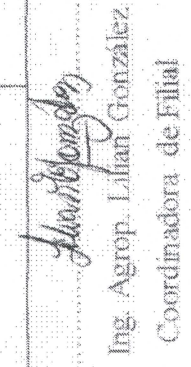 Ing. Agrop. Lilian González
Coordinadora de Filial